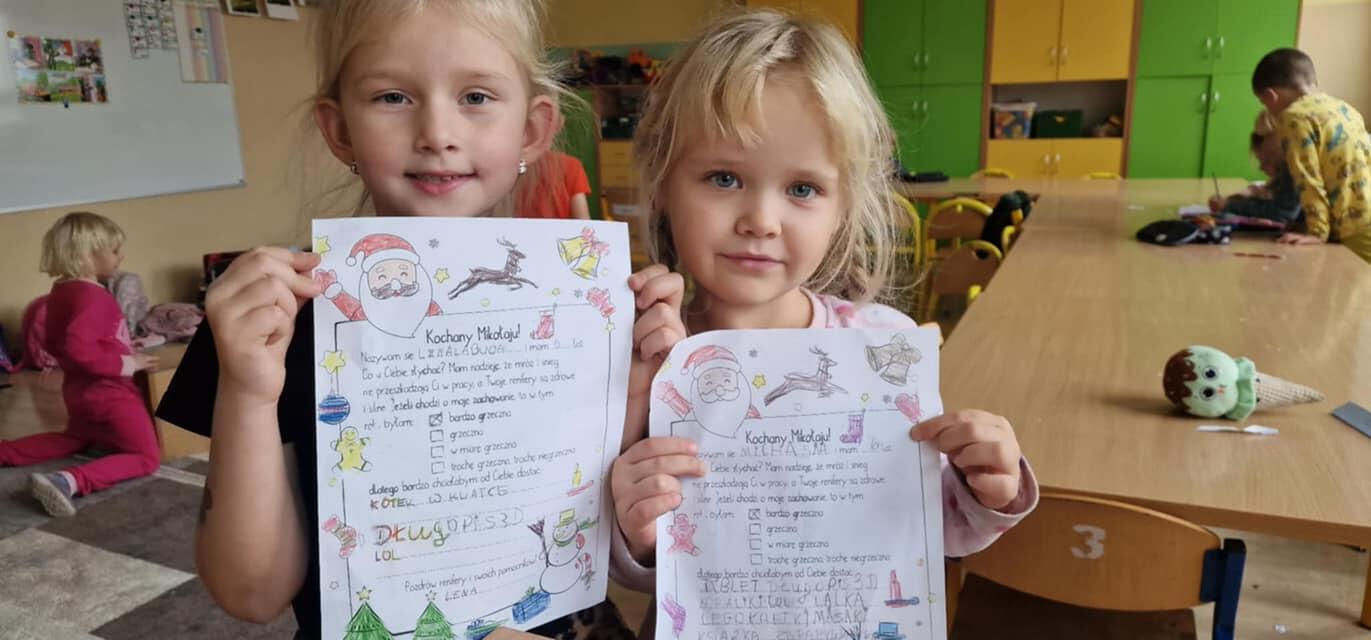 Kochany Mikołaju!
Nazywam się LENA i mam 6 lat.
Co u Ciebie słychać? Mam nadzieję, że mróz i śnieg
nie przeszkadzają Ci w pracy, a Twoje renifery są zdrowe
i silne. Jeżeli chodzi o moje zachowanie, to w tym
rok, byłam:
bardzo grzeczna
grzeczna
w miarę grzeczna
trochę grzeczna, trochę niegrzeczna
dlatego bardzo chciałabym od Ciebie dostać:
KOTEK W KLATCE
DŁUGOPIS 3D
LOL
Pozdrów renifery i swoich pomocników!
LENA
Kochany Mikołaju!
Nazywam się i mam 6 lat.
Co u Ciebie słychać? Mam nadzieję, że mróz i śnieg
nie przeszkadzają Ci w pracy, a Twoje renifery są zdrowe
i silne. Jeżeli chodzi o moje zachowanie, to w tym
rok, byłam:
bardzo grzeczna
grzeczna
w miarę grzeczna
trochę grzeczna, trochę niegrzeczna
dlatego bardzo chciałabym od Ciebie dostać:
TABLET DŁUGOPIS 3D
KORALIKI LOL LALKA
LEGO
KSIĄŻKA
3